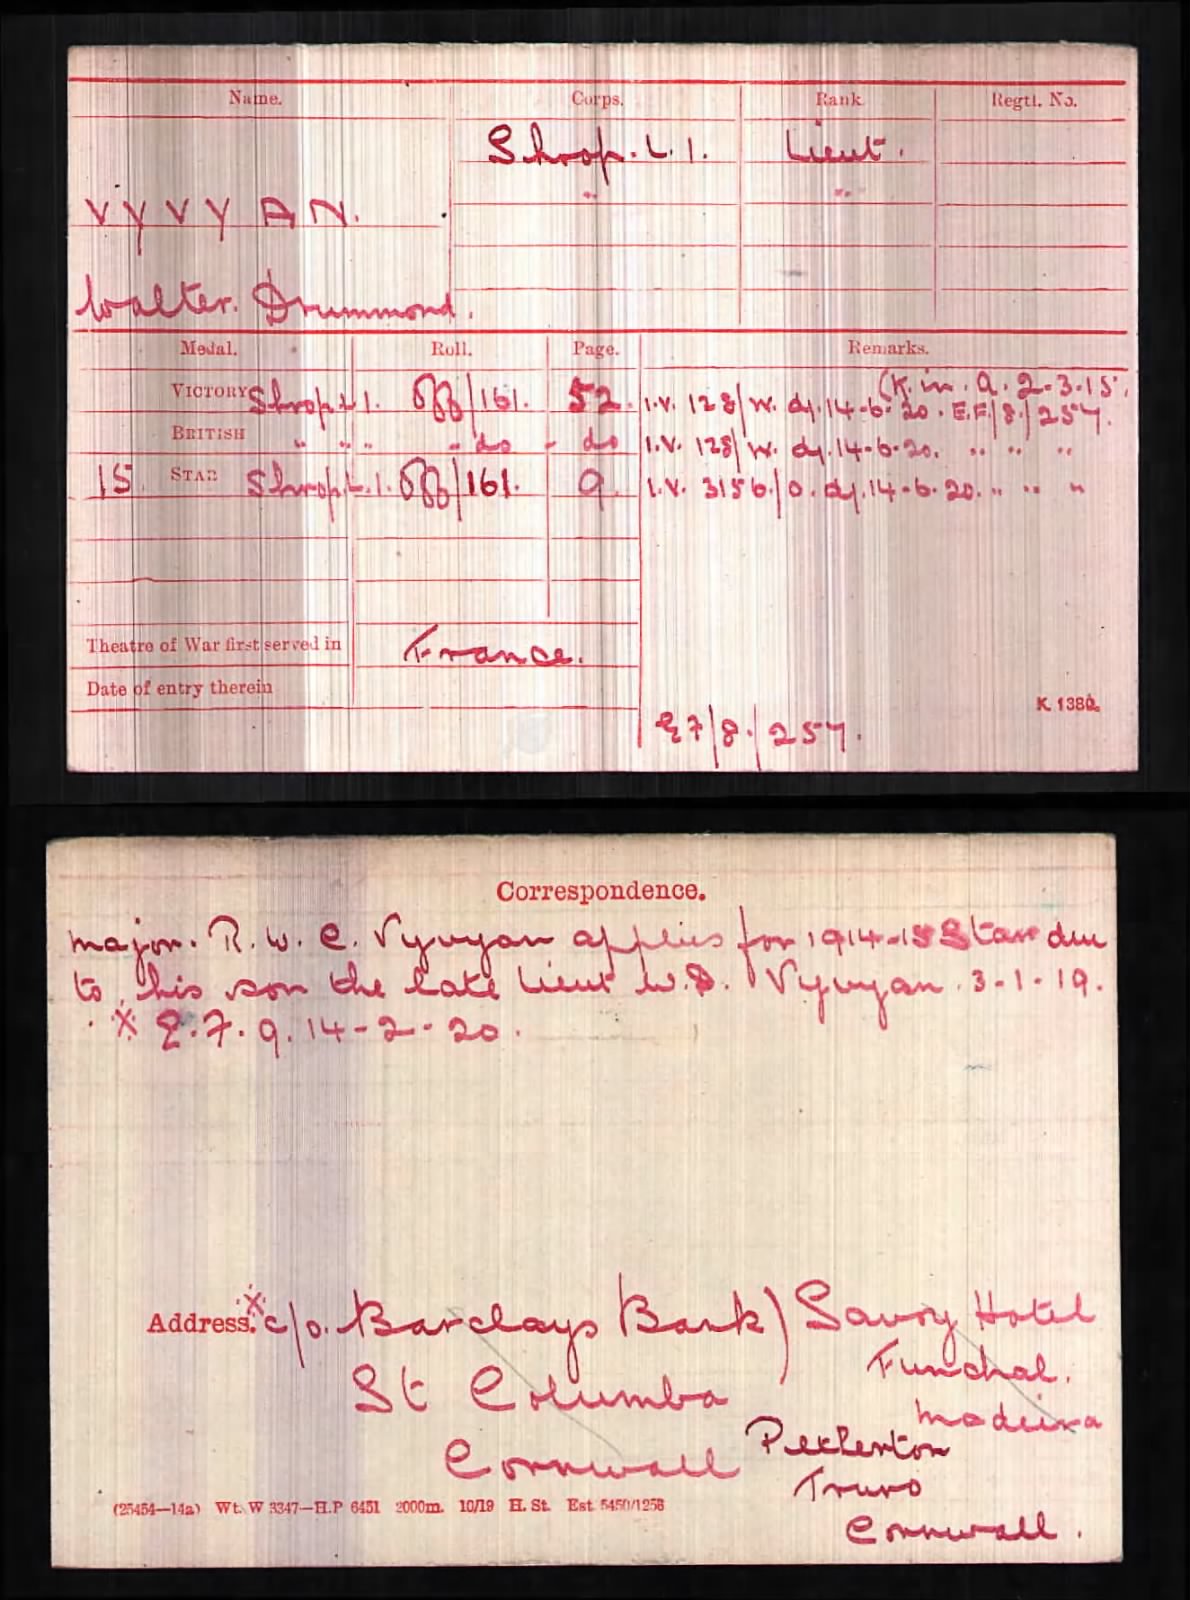 Name. Corps. Rank Regtl. No.
Shrop. L. I. Lieut.
" "
VYVYAN.
Walter. Drummond.
Medal. Roll. Page. Remarks.
(K. in. A. 2-3-15.
VICTORY Shrop L I. Off/161. 52. I.V. 128/W. d/. 14-6-20. E.F/8./257.
BRITISH " " " - do - do I.V. 128/W. d/. 14-6-20. " " "
15 STAR Shrop. L. I. Off/161. 9. I.V. 3156/O. d/. 14-6-20. " " "
Theatre of War first served in France.
Date of entry therein
K. 1380.
E7/8./257.
Correspondence.
Major. R. W. C. Vyvyan applies for 1914-15 Star due
to his son the late Lieut W.D. Vyvyan. 3-1-19.
X E.7.9. 14-2-20.
Address. X c/o. Barclays Bank) Savoy Hotel
St Columba Funchal.
Madeira
Cornwall
Truro
Cornwall.
(25454—14a) Wt. W 3347—H.P 6451 2000m. 10/19 H. St. Est. 5450/1258